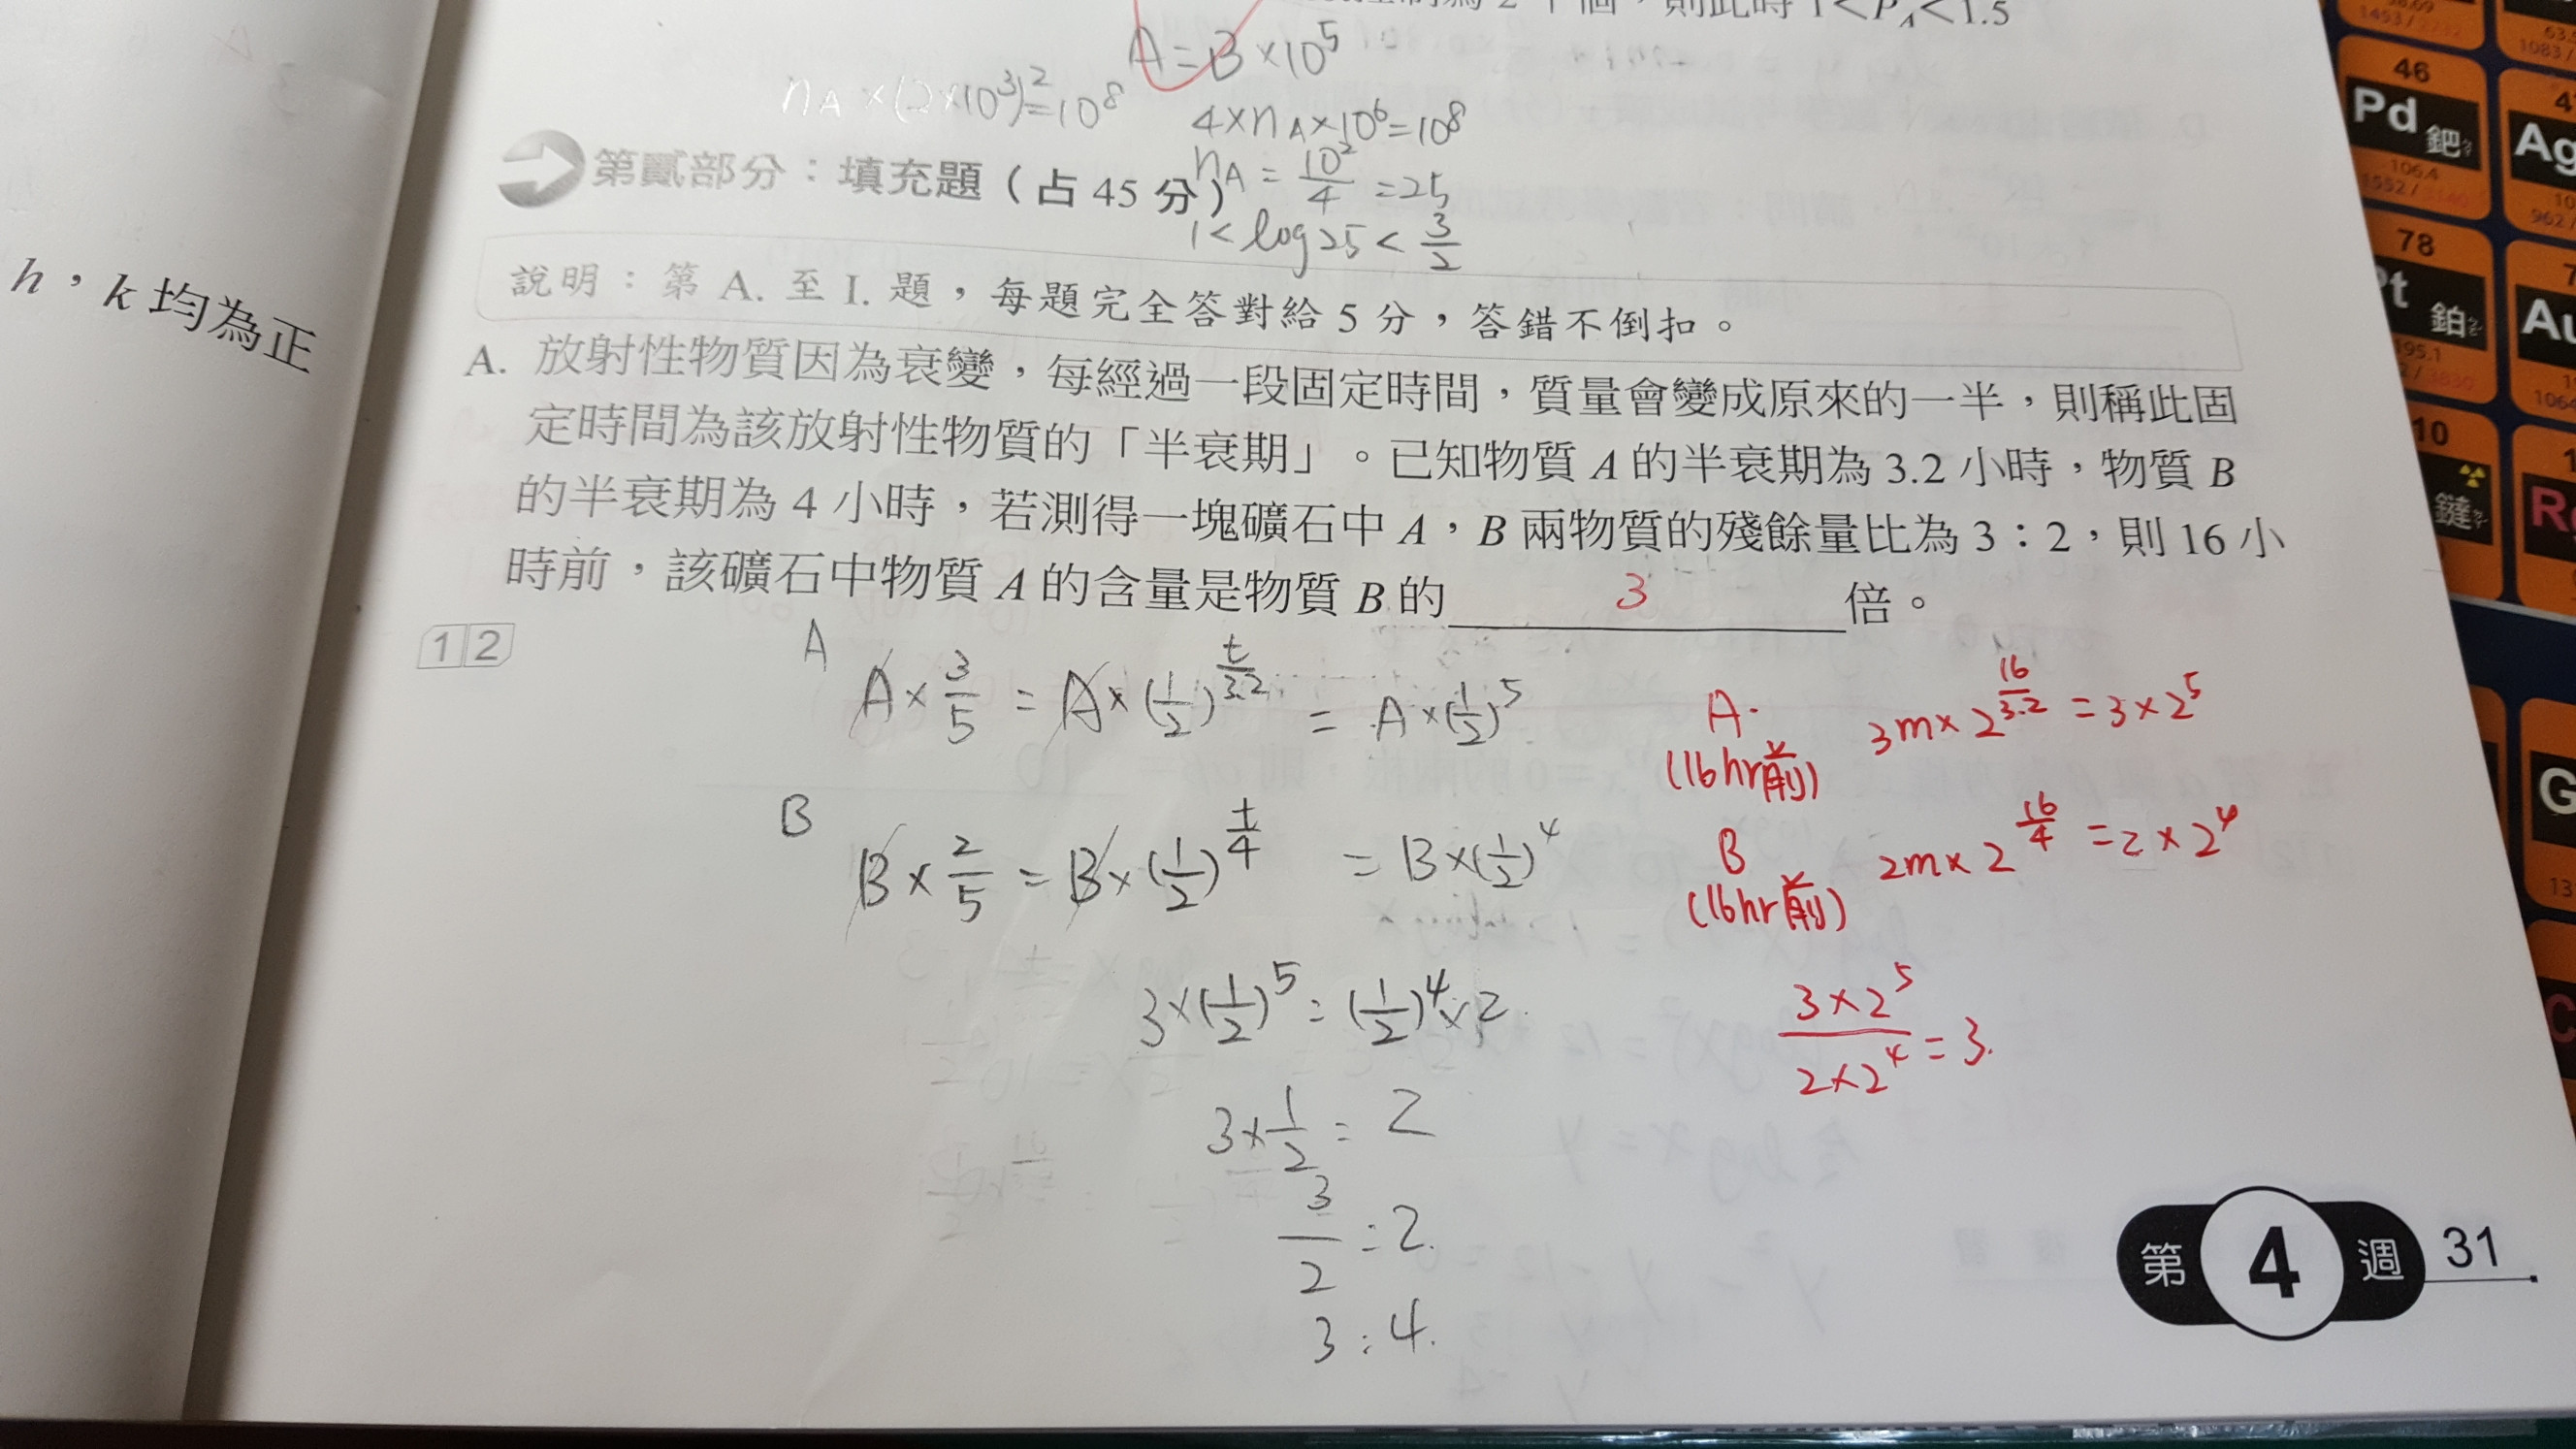 則此時 1<P_A<1.5
A=B×10^5
n_A×(2×10^3)^2=10^8
4×n_A×10^6=10^8
n_A=10^2/4=25
1<log25<3/2
第貳部分：填充題（占 45 分）
說明：第 A. 至 I. 題，每題完全答對給 5 分，答錯不倒扣。
h，k 均為正
A. 放射性物質因為衰變，每經過一段固定時間，質量會變成原來的一半，則稱此固
定時間為該放射性物質的「半衰期」。已知物質 A 的半衰期為 3.2 小時，物質 B
的半衰期為 4 小時，若測得一塊礦石中 A，B 兩物質的殘餘量比為 3：2，則 16 小
時前，該礦石中物質 A 的含量是物質 B 的 3 倍。
12
A
A×3/5=A×(1/2)^(t/3.2)=A×(1/2)^5
B
B×2/5=B×(1/2)^(t/4)=B×(1/2)^4
3×(1/2)^5:(1/2)^4×2
3×1/2:2
3/2:2.
3:4.
A.
(16hr前)
3m×2^(16/3.2)=3×2^5
B
(16hr前)
2m×2^(16/4)=2×2^4
3×2^5/2×2^4=3.
第 4 週 31
46
Pd 鈀
106.4
Ag
78
Pt 鉑
195.1
Au
10
鐽